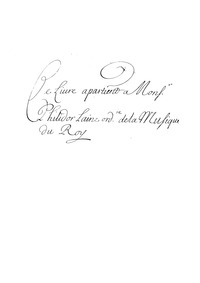 Ce Liure apartient a Monsr
Philidor Laine ordre de la Musique
du Roy